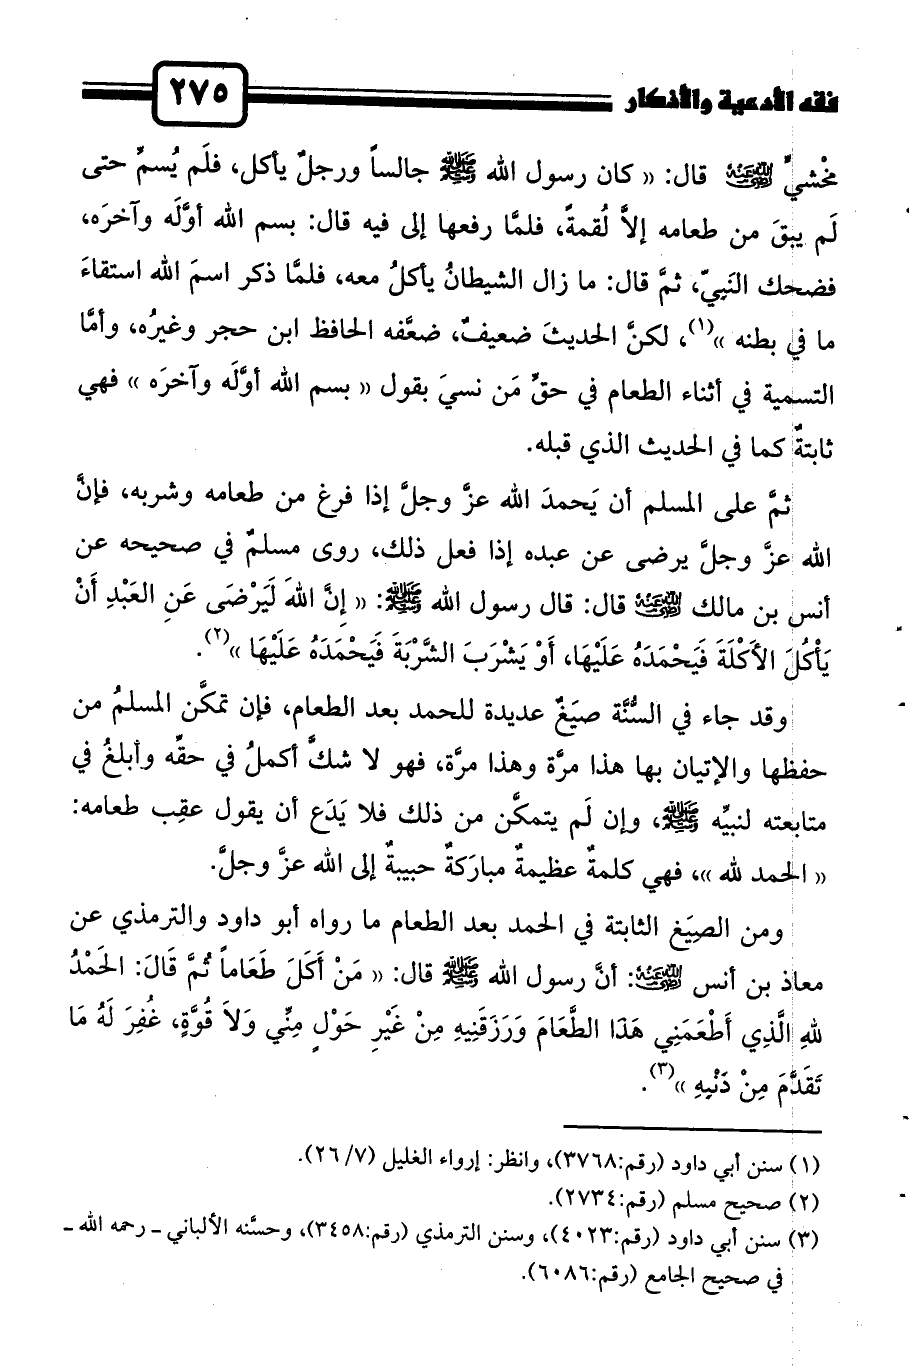 فقه الأدعية والأذكار ٢٧٥
مخْشيٍّ رضي الله عنه قال: « كان رسول الله ﷺ جالساً ورجلٌ يأكل، فلَم يُسمِّ حتى
لَم يبقَ من طعامه إلاَّ لُقمةً، فلمَّا رفعها إلى فيه قال: بسم الله أوَّلَه وآخرَه،
فضحك النَبيّ، ثمَّ قال: ما زال الشيطانُ يأكلُ معه، فلمَّا ذكر اسمَ الله استقاءَ
ما في بطنه »(١)، لكنَّ الحديثَ ضعيفٌ، ضعَّفه الحافظ ابن حجر وغيرُه، وأمَّا
التسمية في أثناء الطعام في حقِّ مَن نسيَ بقول « بسم الله أوَّلَه وآخرَه » فهي
ثابتةٌ كما في الحديث الذي قبله.
ثمَّ على المسلم أن يَحمدَ الله عزَّ وجلَّ إذا فرغ من طعامه وشربه، فإنَّ
الله عزَّ وجلَّ يرضى عن عبده إذا فعل ذلك، روى مسلمٌ في صحيحه عن
أنس بن مالك رضي الله عنه قال: قال رسول الله ﷺ: « إِنَّ اللهَ لَيَرْضَى عَنِ العَبْدِ أَنْ
يَأْكُلَ الأَكْلَةَ فَيَحْمَدَهُ عَلَيْهَا، أَوْ يَشْرَبَ الشَّرْبَةَ فَيَحْمَدَهُ عَلَيْهَا »(٢).
وقد جاء في السُّنَّة صيَغٌ عديدة للحمد بعد الطعام، فإن تمكَّن المسلمُ من
حفظها والإتيان بها هذا مرَّة وهذا مرَّة، فهو لا شكَّ أكملُ في حقِّه وأبلغُ في
متابعته لنبيِّه ﷺ، وإن لَم يتمكَّن من ذلك فلا يَدَع أن يقول عقِب طعامه:
« الحمد لله »، فهي كلمةٌ عظيمةٌ مبارَكةٌ حبيبةٌ إلى الله عزَّ وجلَّ.
ومن الصيَغ الثابتة في الحمد بعد الطعام ما رواه أبو داود والترمذي عن
معاذ بن أنس رضي الله عنه: أنَّ رسول الله ﷺ قال: « مَنْ أَكَلَ طَعَاماً ثُمَّ قَالَ: الحَمْدُ
للهِ الَّذِي أَطْعَمَنِي هَذَا الطَّعَامَ وَرَزَقَنِيهِ مِنْ غَيْرِ حَوْلٍ مِنِّي وَلاَ قُوَّةٍ، غُفِرَ لَهُ مَا
تَقَدَّمَ مِنْ ذَنْبِهِ »(٣).
(١) سنن أبي داود (رقم:٣٧٦٨)، وانظر: إرواء الغليل (٢٦/٧).
(٢) صحيح مسلم (رقم:٢٧٣٤).
(٣) سنن أبي داود (رقم:٤٠٢٣)، وسنن الترمذي (رقم:٣٤٥٨)، وحسَّنه الألباني ـ رحمه الله ـ
في صحيح الجامع (رقم:٦٠٨٦).